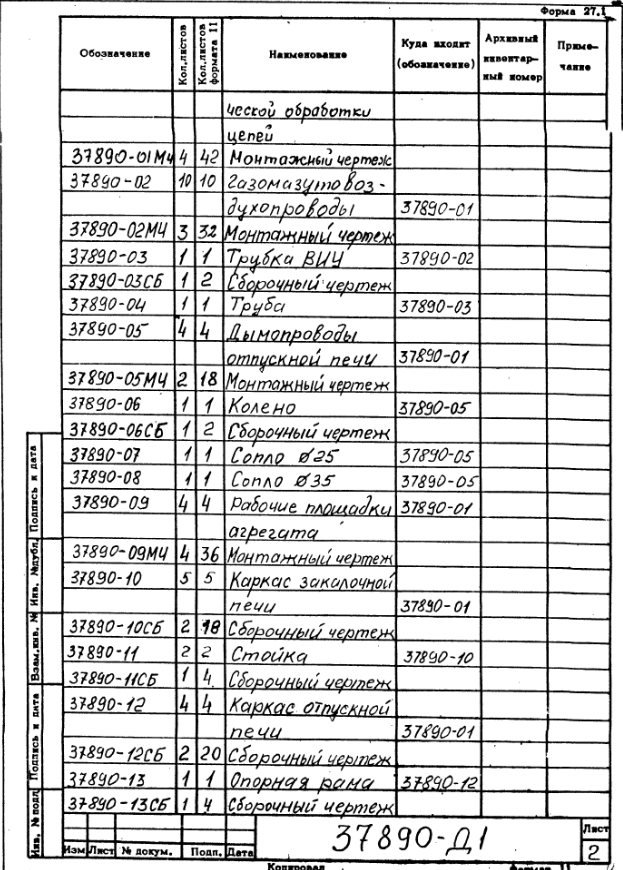 Форма 27.1
Обозначение Кол.листов Кол.листов формата 11 Наименование Куда входит (обозначение) Архивный инвентар-ный номер Приме-чание
ческой обработки
цепей
37890-01МЧ 4 42 Монтажный чертеж
37890-02 10 10 Газомазутовоз-
духопроводы 37890-01
37890-02МЧ 3 32 Монтажный чертеж
37890-03 1 1 Трубка ВИЧ 37890-02
37890-03СБ 1 2 Сборочный чертеж
37890-04 1 1 Труба 37890-03
37890-05 4 4 Дымопроводы
отпускной печи 37890-01
37890-05МЧ 2 18 Монтажный чертеж
37890-06 1 1 Колено 37890-05
37890-06СБ 1 2 Сборочный чертеж
37890-07 1 1 Сопло ø25 37890-05
37890-08 1 1 Сопло ø35 37890-05
37890-09 4 4 Рабочие площадки 37890-01
агрегата
37890-09МЧ 4 36 Монтажный чертеж
37890-10 5 5 Каркас закалочной
печи 37890-01
37890-10СБ 2 18 Сборочный чертеж
37890-11 2 2 Стойка 37890-10
37890-11СБ 1 4 Сборочный чертеж
37890-12 4 4 Каркас отпускной
печи 37890-01
37890-12СБ 2 20 Сборочный чертеж
37890-13 1 1 Опорная рама 37890-12
37890-13СБ 1 4 Сборочный чертеж
Подпись и дата
Инв. №дубл.
Взам.инв. №
Подпись и дата
Инв. № подл.
Изм Лист № докум. Подп. Дата
37890-Д1
Лист
2
Копировал Формат 11